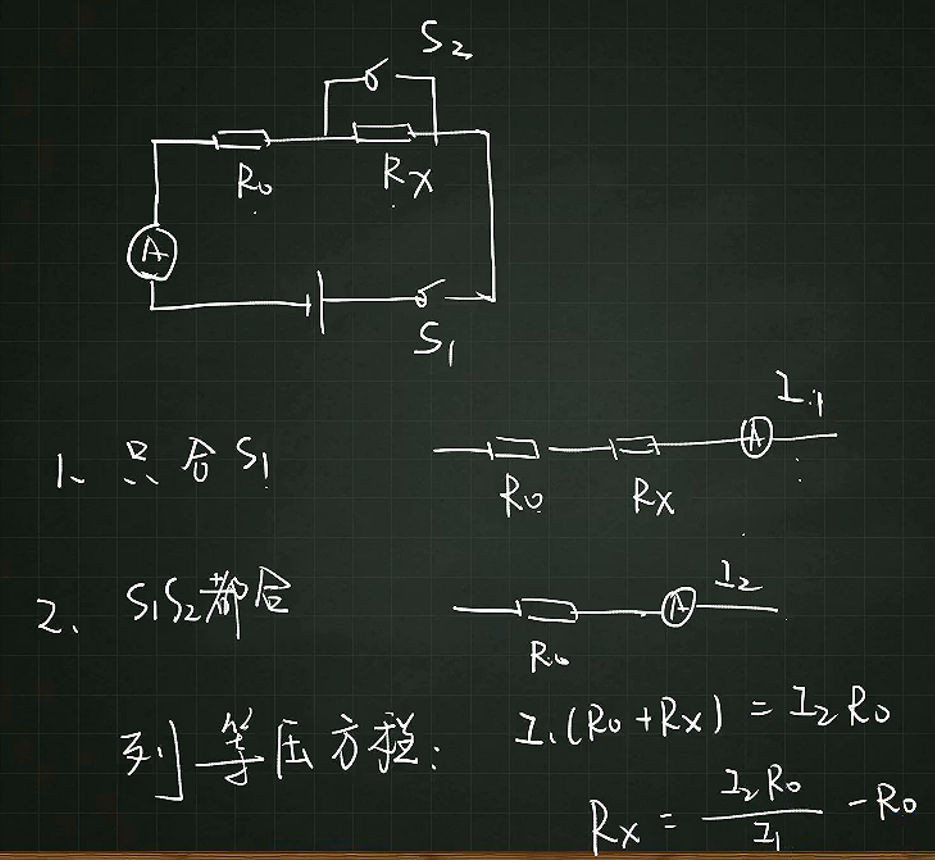 S₂
R₀ Rx
A
S₁
I₁
1、只合S₁
A
R₀ Rx
2、S₁S₂都合
I₂
A
R₀
列等压方程:
I₁(R₀+Rx)=I₂R₀
Rx = I₂R₀/I₁ -R₀